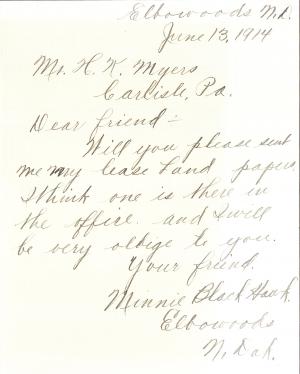 Elbowoods N.D.
June 13, 1914
Mr. H. K. Myers
Carlisle, Pa.
Dear friend :-
Will you please sent
me my lease Land papers,
I think one is there in
the office. and I will
be very oldige to you.
Your friend.
Minnie Black Hawk.
Elbowoods
N. Dak.